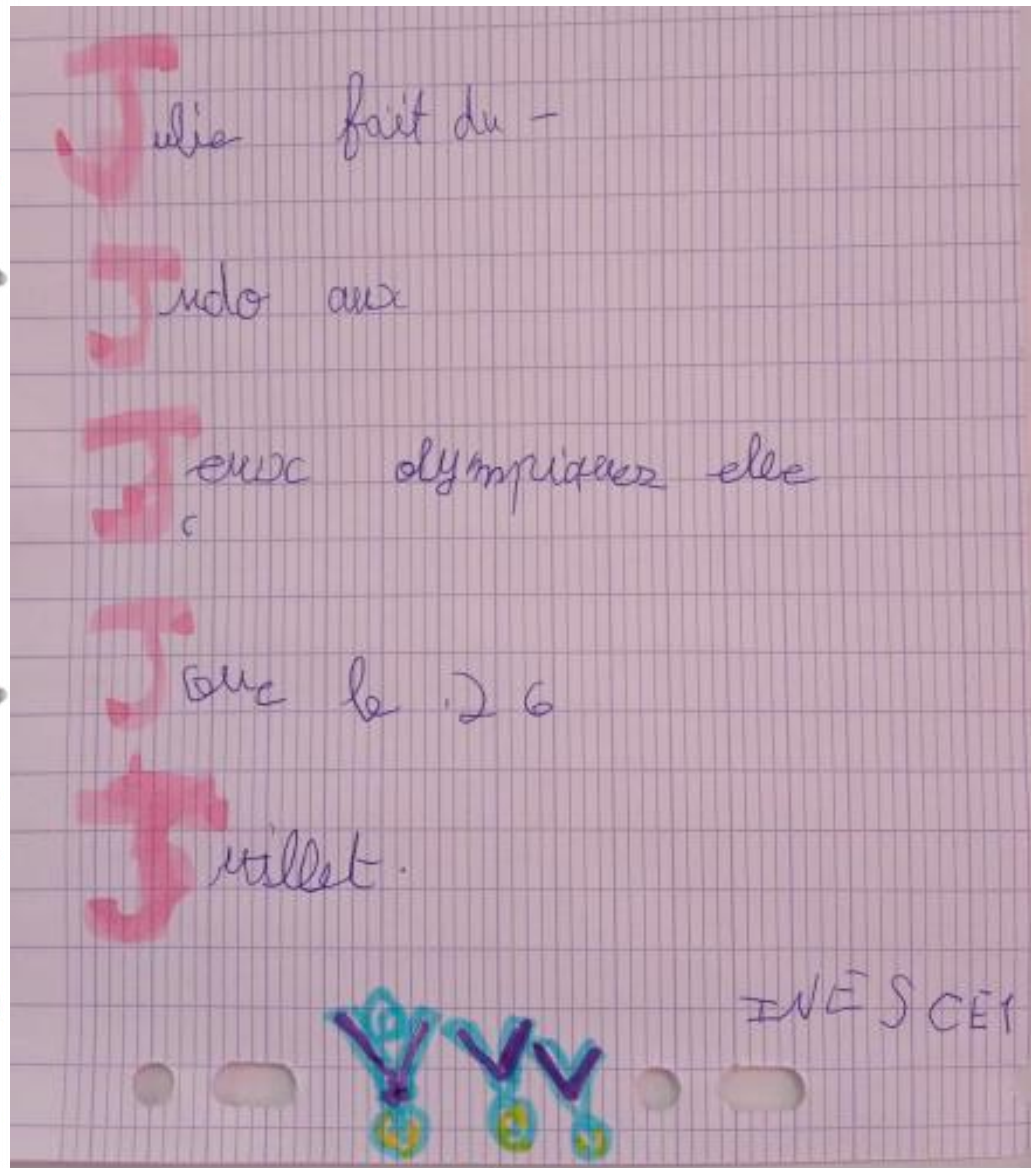 Julie fait du -
Judo aux
Jeux olympiques elle
Joue le .26
Juillet.
INES CE1